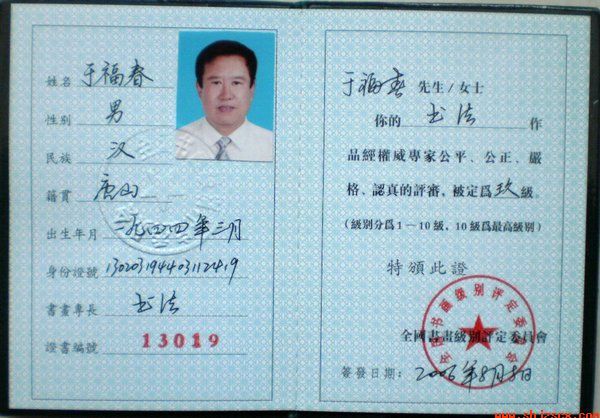 姓名 于福春
性別 男
民族 汉
籍貫 唐山
出生年月 一九四四年三月
身份證號
書畫專長 书法
證書編號 13019
于福春 先生/女士
你的 书法 作
品經權威專家公平、公正、嚴
格、認真的評審，被定爲玖級。
(級別分爲1－10級，10級爲最高級別)
特頒此證
全國書畫級別評定委員會
簽發日期：2006年8月8日